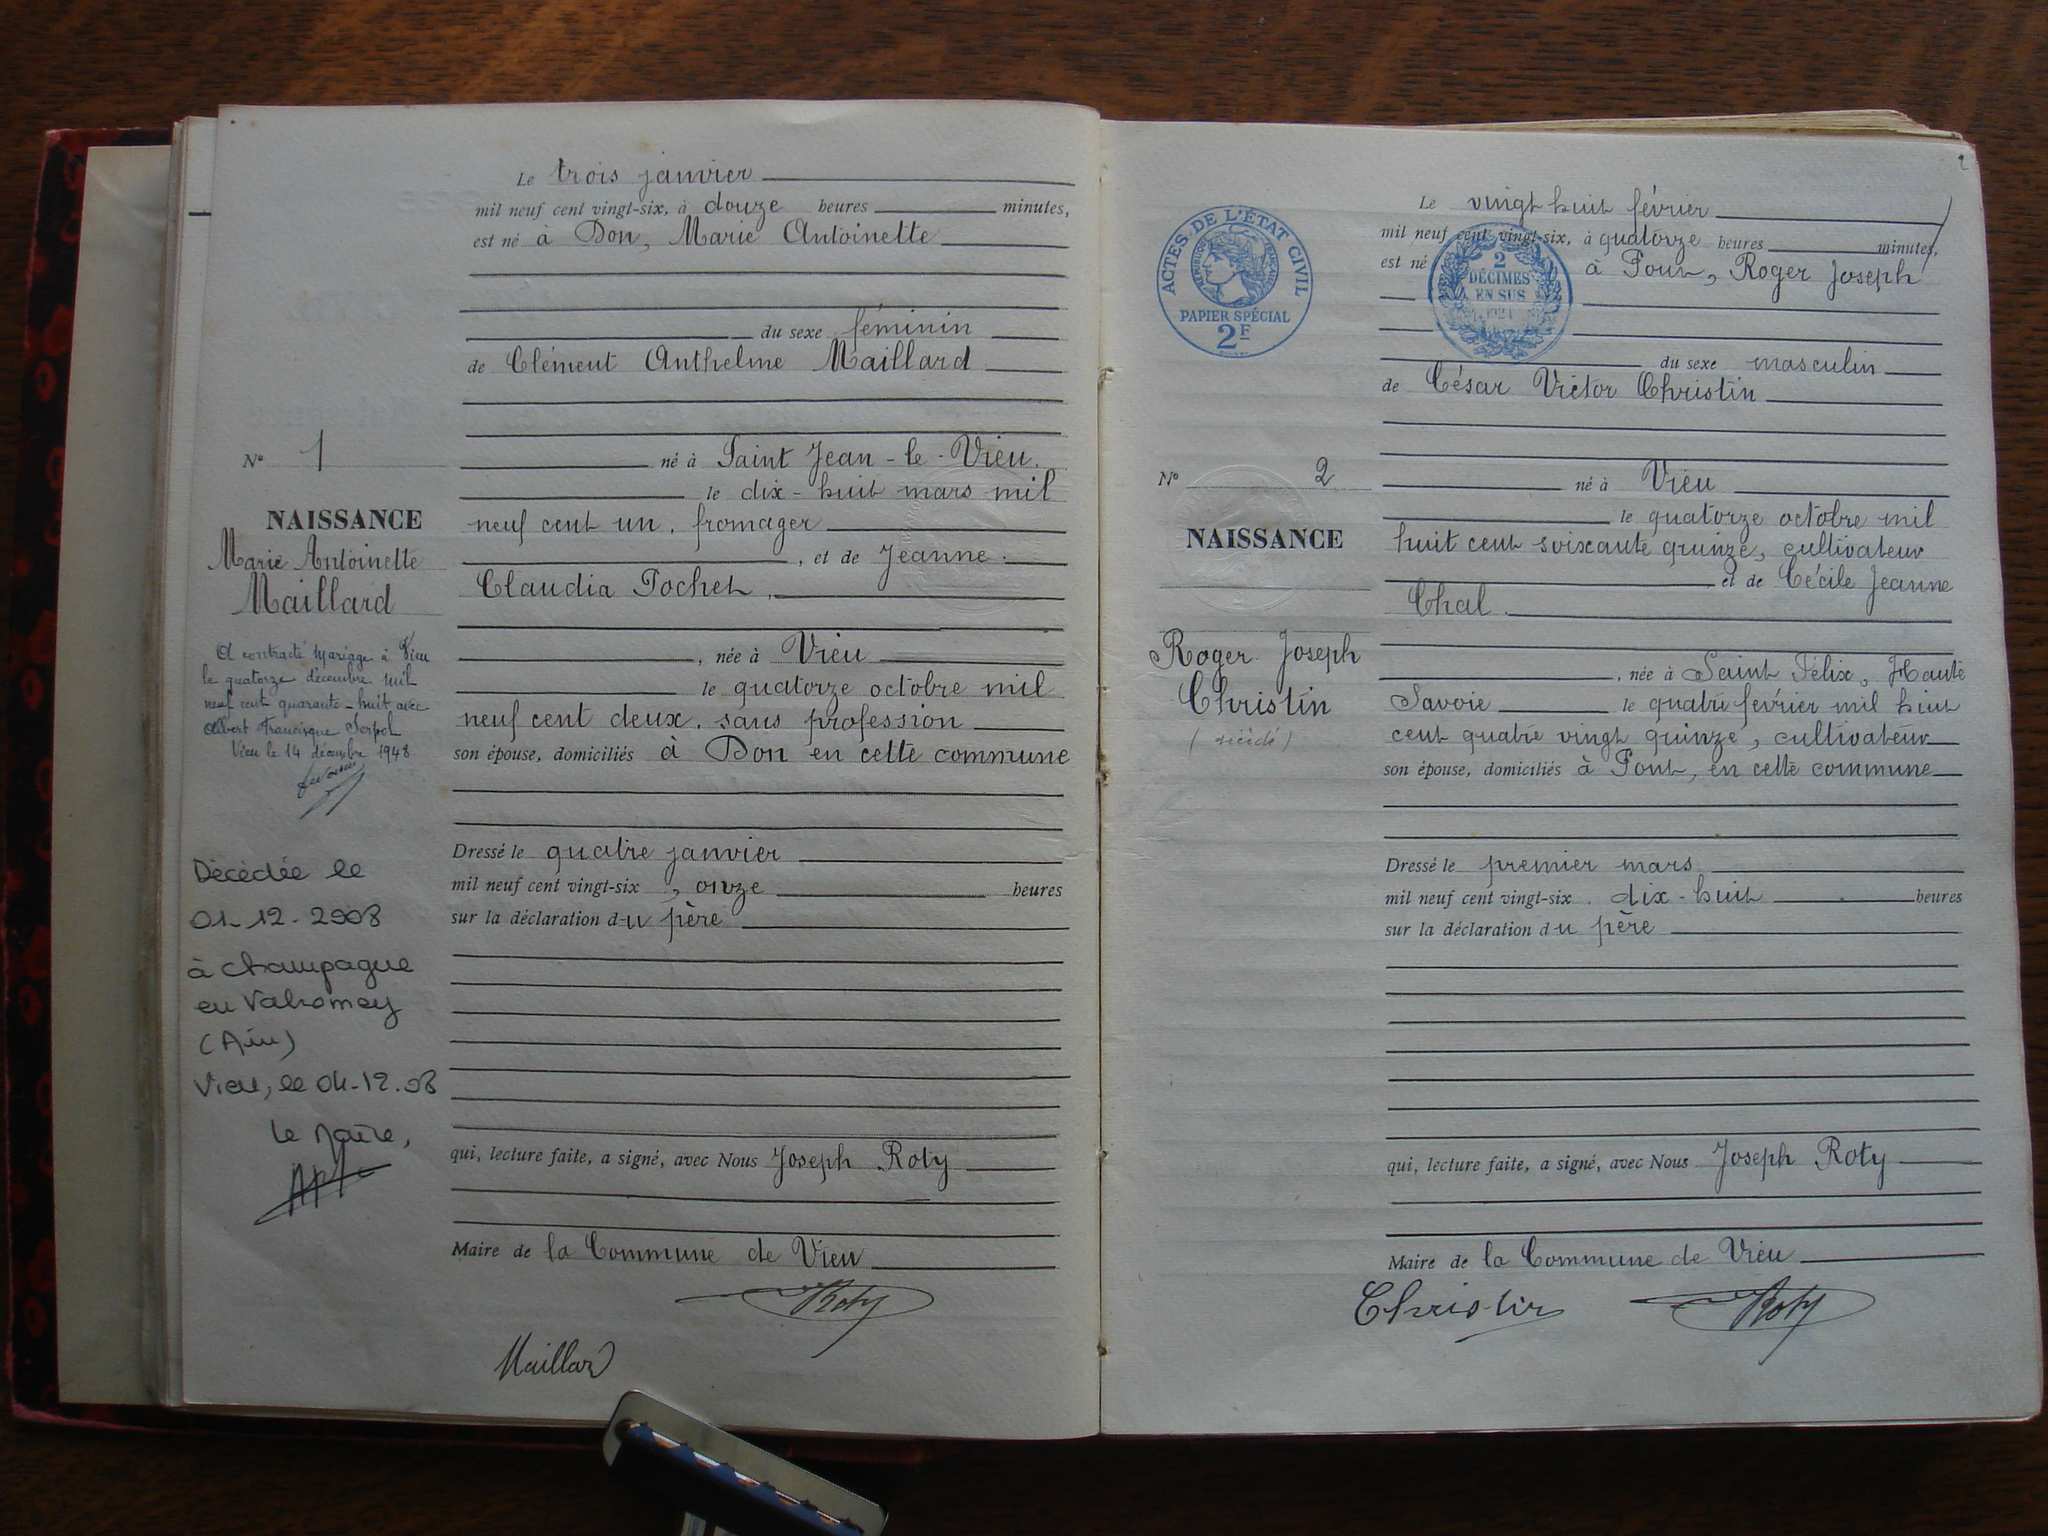 Le trois janvier
mil neuf cent vingt-six, à douze heures minutes,
est né à Don, Marie Antoinette
du sexe féminin
de Clément Anthelme Maillard
né à Saint Jean-le-Vieu.
le dix-huit mars mil
neuf cent un, fromager
, et de Jeanne
Claudia Pochet,
, née à Vieu
le quatorze octobre mil
neuf cent deux, sans profession
son épouse, domiciliés à Don en cette commune
Dressé le quatre janvier
mil neuf cent vingt-six, onze heures
sur la déclaration du père
qui, lecture faite, a signé, avec Nous Joseph Roty
Maire de la Commune de Vieu
Roty
Maillard
N° 1
NAISSANCE
Marie Antoinette
Maillard
A contracté mariage à Vieu
le quatorze décembre mil
neuf cent quarante-huit avec
Albert Francisque
Vieu le 14 décembre 1948
Décédée le
01-12-2008
à Champagne
en Valromey
(Ain)
Vieu, le 04-12-08
Le Maire,
2
Le vingt huit février
mil neuf cent vingt-six, à quatorze heures minutes,
est né à Pont, Roger Joseph
du sexe masculin
de César Victor Christin
né à Vieu
le quatorze octobre mil
huit cent soixante quinze, cultivateur
et de Cécile Jeanne
Chal.
, née à Saint Félix, Haute
Savoie le quatre février mil huit
cent quatre vingt quinze, cultivateur
son épouse, domiciliés à Pont, en cette commune
Dressé le premier mars
mil neuf cent vingt-six, dix-huit heures
sur la déclaration du père
qui, lecture faite, a signé, avec Nous Joseph Roty
Maire de la Commune de Vieu
Christin Roty
ACTES DE L'ÉTAT CIVIL
RÉPUBLIQUE FRANÇAISE
PAPIER SPÉCIAL
2F
2
DÉCIMES
EN SUS
N° 2
NAISSANCE
Roger Joseph
Christin
(décédé)